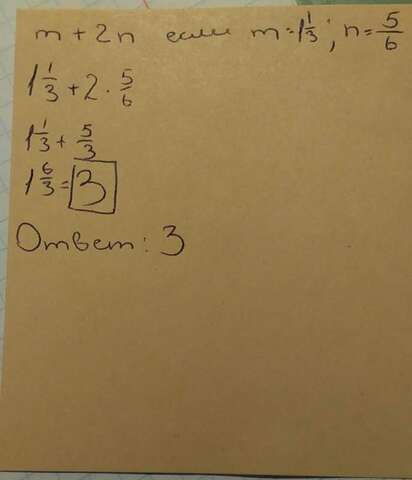 m + 2n если m = 1 1/3; n = 5/6
1 1/3 + 2 · 5/6
1 1/3 + 5/3
1 6/3 = 3
Ответ: 3